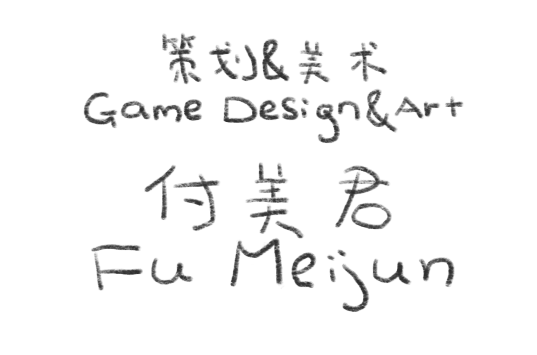 策划&美术
Game Design&Art
付美君
Fu Meijun